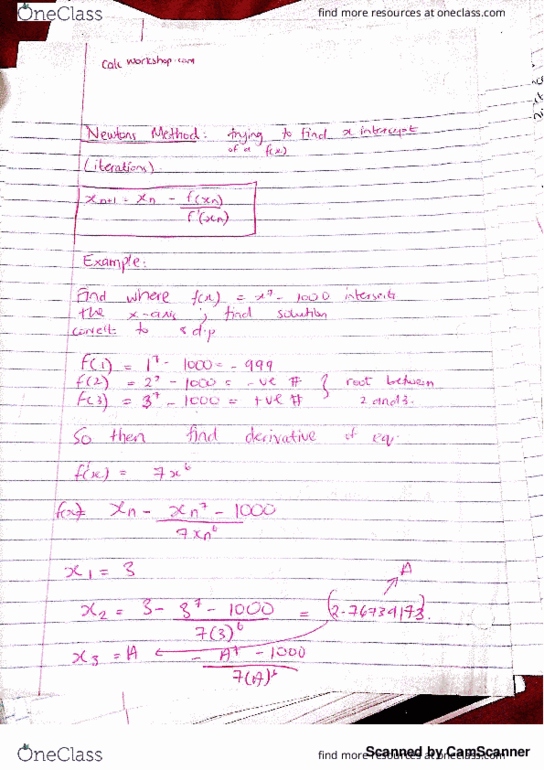 OneClass
find more resources at oneclass.com
Calc workshop.com
Newtons Method: trying to find x intercept
of a f(x)
(iterations)
Xn+1 = Xn - f(xn)
f'(xn)
Example:
Find where f(x) = x⁷ - 1000 intersects
the x-axis, find solution
correct to 8 d.p
f(1) = 1⁷ - 1000 = - 999
f(2) = 2⁷ - 1000 = -ve #
f(3) = 3⁷ - 1000 = +ve #
} root between
2 and 3.
So then find derivative of eq.
f'(x) = 7x⁶
f(x)= Xn - xn⁷ - 1000
7xn⁶
x1 = 3
A
x2 = 3 - 3⁷ - 1000 = (2.76734173).
7(3)⁶
x3 = A - A⁷ - 1000
7(A)⁶
OneClass
find more resources at oneclass.com
Scanned by CamScanner